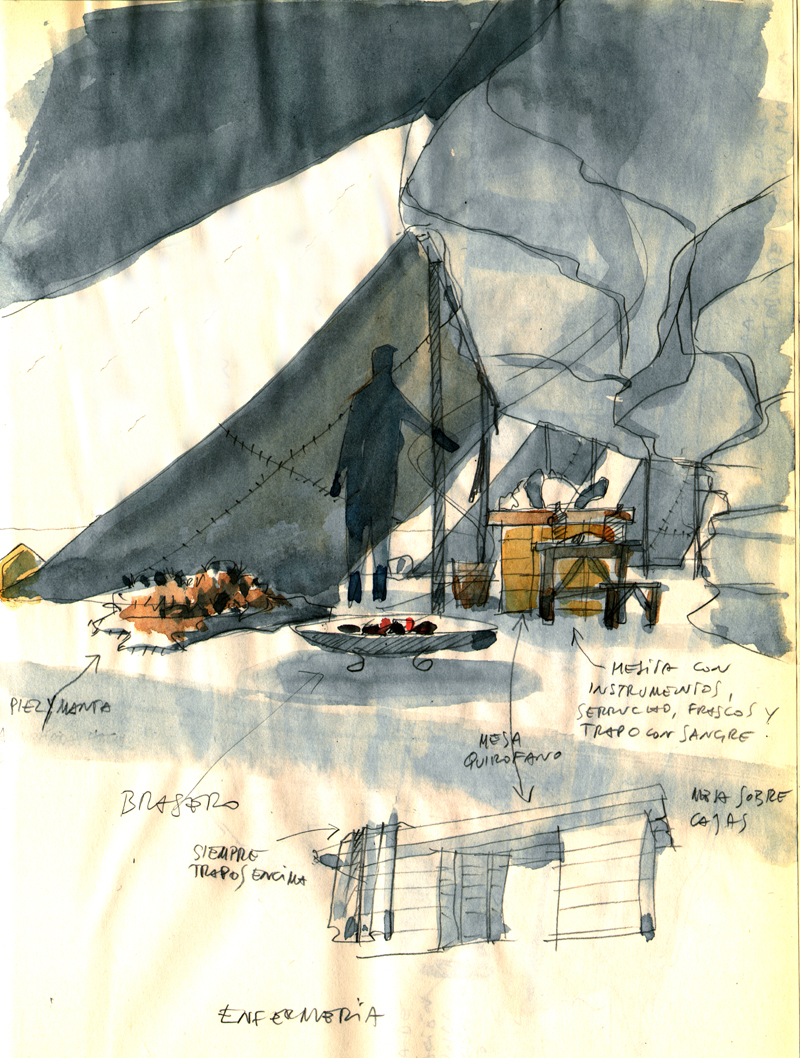 PIEL Y MANTA
MESITA CON
INSTRUMENTOS,
SERRUCHO, FRASCOS Y
TRAPO CON SANGRE.
MESA
QUIROFANO
BRASERO
MESA SOBRE
CAJAS
SIEMPRE
TRAPOS ENCIMA
ENFERMERIA